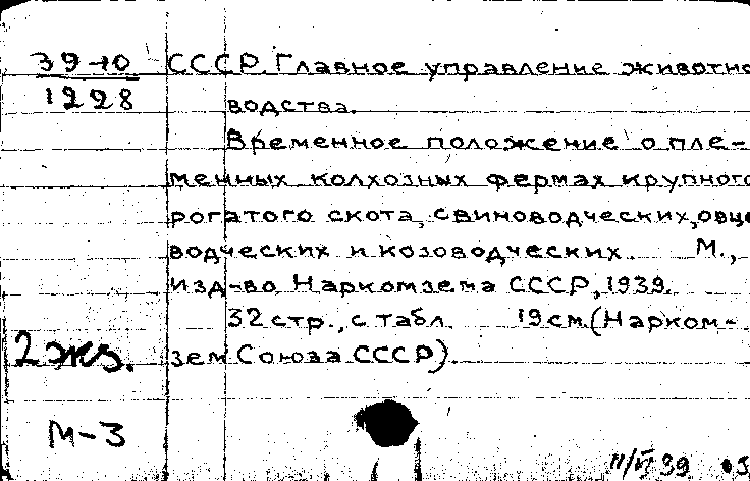 39-10
1228
СССР. Главное управление животно
водства.
Временное положение о пле-
менных колхозных фермах крупного
рогатого скота, свиноводческих, овце
водческих и козоводческих. М.,
изд-во Наркомзема СССР, 1939.
32 стр., с табл. 19 см. (Нарком-
зем Союза СССР).
2 экз.
М-3
11/VI 39